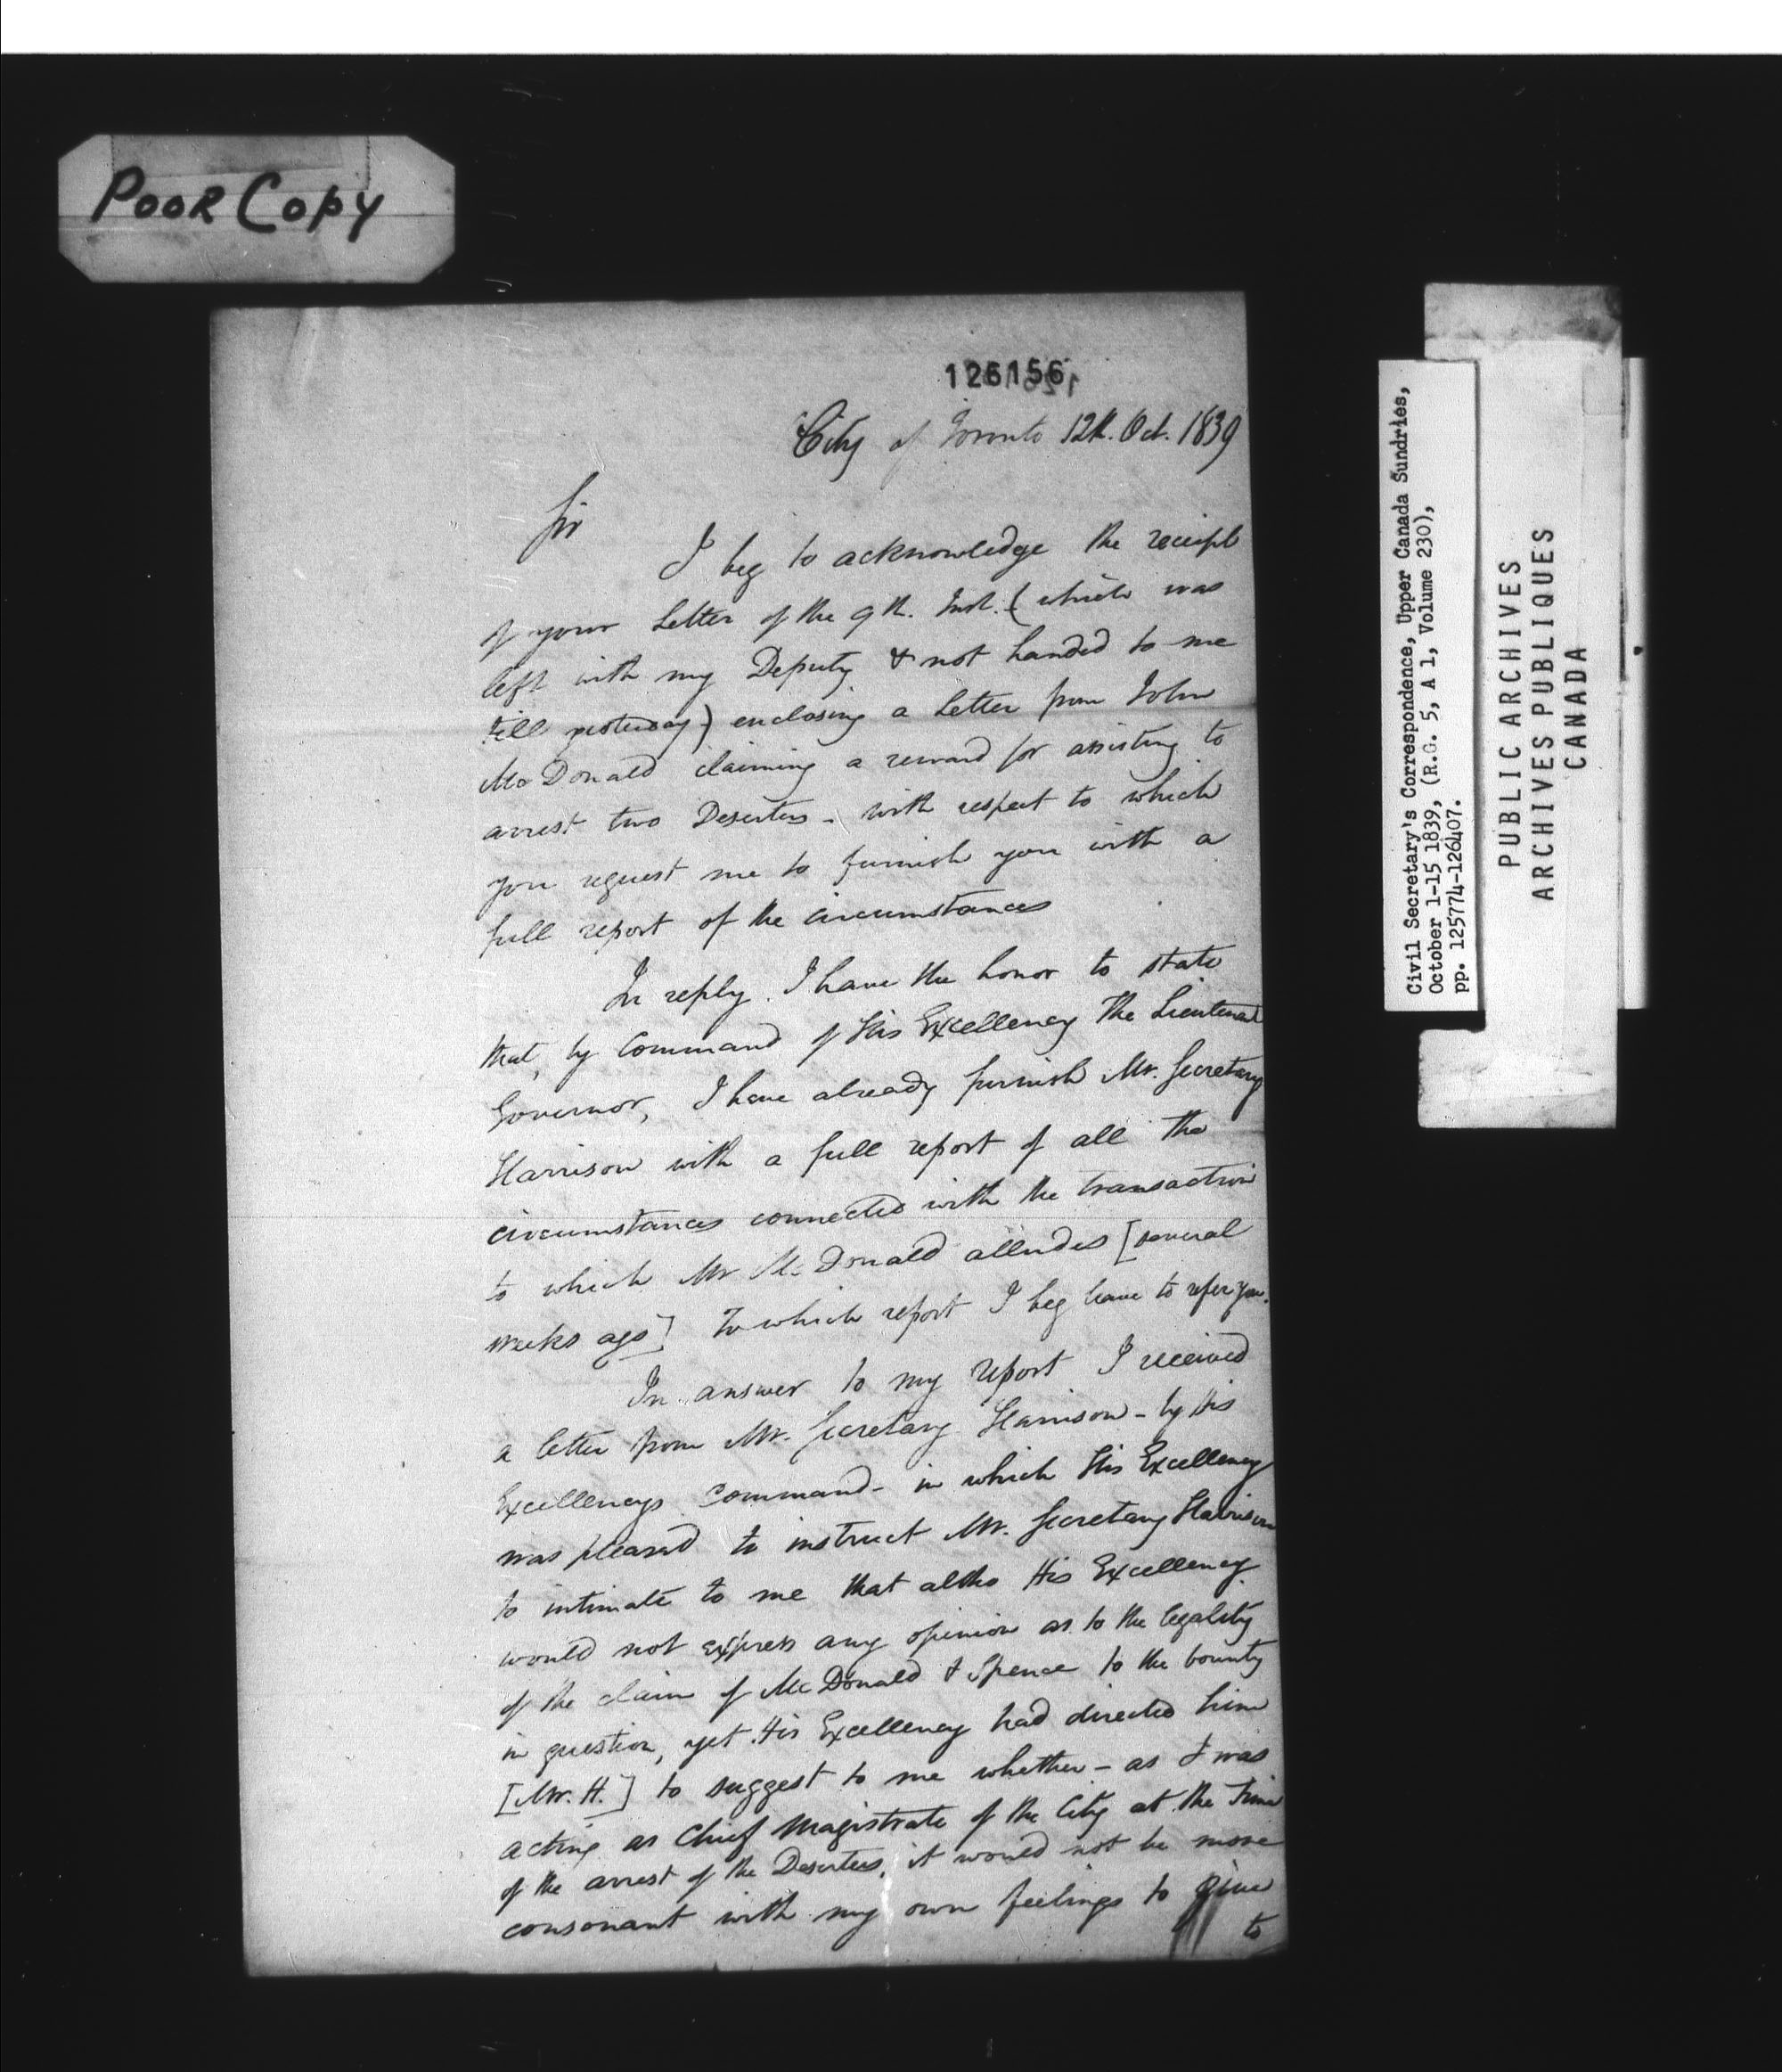 POOR COPY
126156
City of Toronto 12th. Oct. 1839
Sir
I beg to acknowledge the receipt
of your Letter of the 9th. Inst. (which was
left with my Deputy & not handed to me
till yesterday) enclosing a Letter from John
McDonald claiming a reward for assisting to
arrest two Deserters - with respect to which
you request me to furnish you with a
full report of the circumstances
In reply. I have the honor to state
that, by Command of His Excellency The Lieutenant
Governor, I have already furnish Mr. Secretary
Harrison with a full report of all the
circumstances connected with the transaction
to which Mr McDonald alludes [several
weeks ago] To which report I beg leave to refer you.
In answer to my report I received
a letter from Mr. Secretary Harrison - by His
Excellencys Command - in which His Excellency
was pleased to instruct Mr. Secretary Harrison
to intimate to me that altho His Excellency
would not express any opinion as to the legality
of the claim of McDonald & Spence to the bounty
in question, yet His Excellency had directed him
[Mr. H.] to suggest to me whether - as I was
acting as Chief Magistrate of the City at the Time
of the arrest of the Deserters, it would not be more
consonant with my own feelings to give
to
Civil Secretary's Correspondence, Upper Canada Sundries,
October 1-15 1839, (R.G. 5, A 1, Volume 230),
pp. 125774-126407.
PUBLIC ARCHIVES
ARCHIVES PUBLIQUES
CANADA